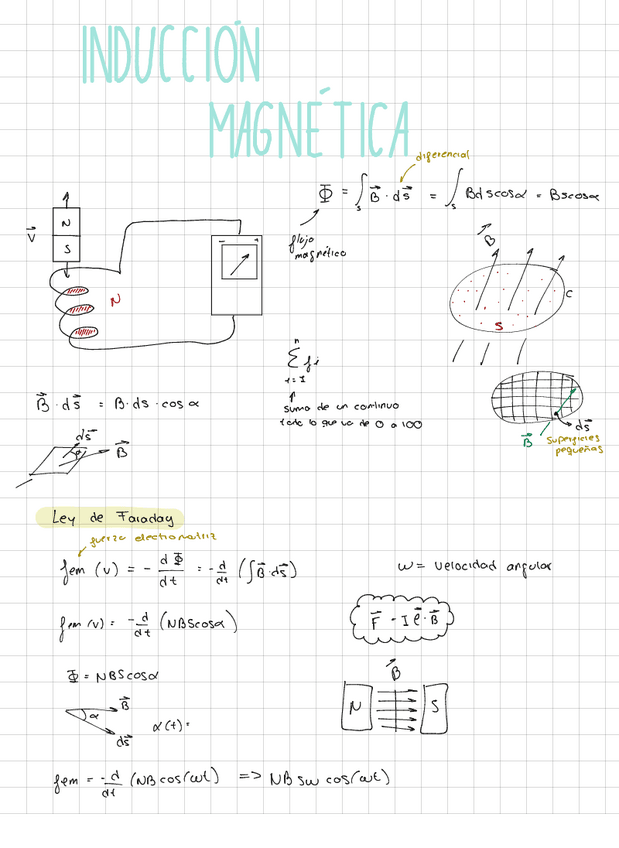 INDUCCIÓN
MAGNÉTICA
diferencial
Φ = ∫s B⃗ · ds⃗ = ∫s Bdscosα = Bscosα
flujo
magnético
V⃗
N
S
N
- +
B⃗
C
S
n
Σ fi
i=1
suma de un continuo
todo lo que va de 0 a 100
B⃗ · ds⃗ = B · ds · cos α
ds⃗
B⃗
ds⃗
B⃗
superficies
pequeñas
Ley de Faraday
fuerza electromotriz
fem (v) = - dΦ/dt = - d/dt (∫B⃗·ds⃗)
w = velocidad angular
fem (v) = -d/dt (NBScosα)
F⃗ = I ℓ⃗ · B⃗
Φ = NBScosα
B⃗
N
S
B⃗
α
ds⃗
α(t) =
fem = -d/dt (NB cos(wt) => NB sw cos(wt)